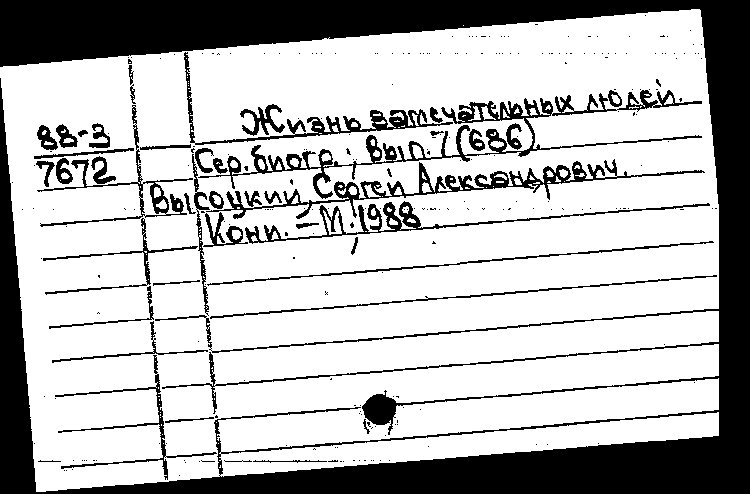 Жизнь замечательных людей.
88-3
Сер. биогр.; Вып. 7 (686).
7672
Высоцкий, Сергей Александрович.
Кони. - М., 1988.